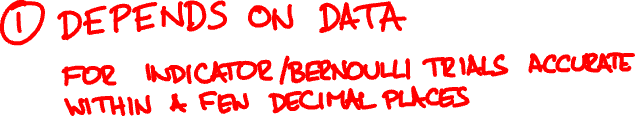 ① DEPENDS ON DATA
FOR INDICATOR/BERNOULLI TRIALS ACCURATE
WITHIN A FEW DECIMAL PLACES